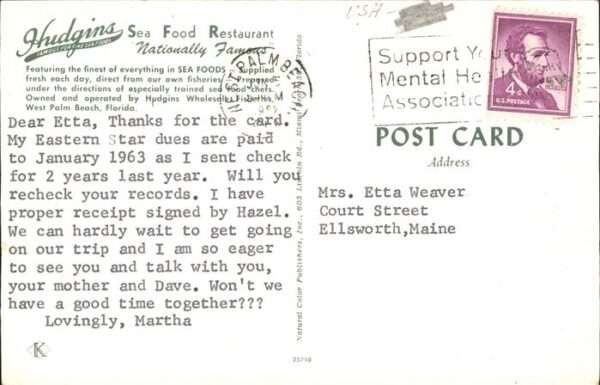 USA-
Hudgins Sea Food Restaurant
FAMOUS FOR FINE SEA FOOD
Nationally Famous
Featuring the finest of everything in SEA FOODS - Supplied
fresh each day, direct from our own fisheries. Prepared
under the directions of especially trained sea food chefs.
Owned and operated by Hudgins Wholesale Fisheries,
West Palm Beach, Florida.
Dear Etta, Thanks for the card.
My Eastern Star dues are paid
to January 1963 as I sent check
for 2 years last year. Will you
recheck your records. I have
proper receipt signed by Hazel.
We can hardly wait to get going
on our trip and I am so eager
to see you and talk with you,
your mother and Dave. Won't we
have a good time together???
Lovingly, Martha
K
Natural Color Publishers, Inc., 603 Lincoln Rd., Miami Florida
WEST PALM BEACH
Support Your
Mental He
Associatio
4¢
U.S. POSTAGE
POST CARD
Address
Mrs. Etta Weaver
Court Street
Ellsworth,Maine